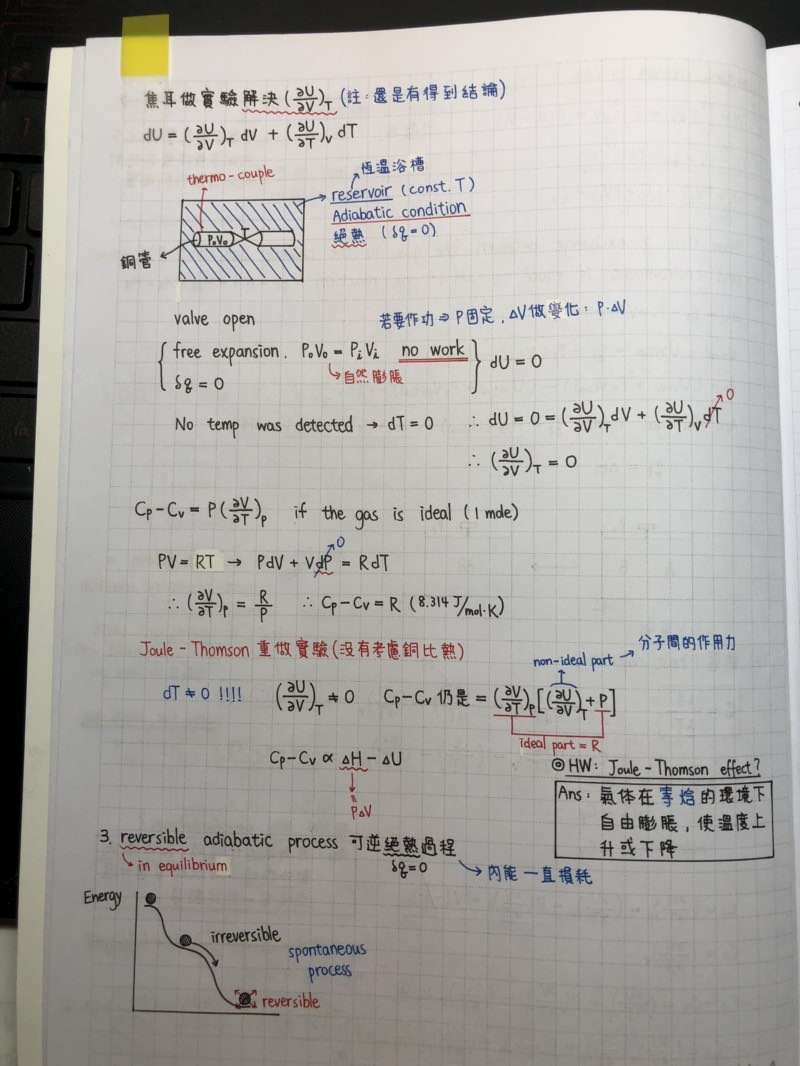 焦耳做實驗解決(∂U/∂V)_T (註:還是有得到結論)
dU = (∂U/∂V)_T dV + (∂U/∂T)_V dT
恆溫浴槽
thermo-couple
reservoir (const. T)
Adiabatic condition
絕熱 (δq=0)
P₀V₀
銅管
valve open
若要作功 ⇒ P固定,ΔV做變化:P·ΔV
free expansion. P₀V₀ = PᵢVᵢ no work
dU = 0
自然膨脹
δq = 0
No temp was detected → dT = 0 ∴ dU = 0 = (∂U/∂V)_T dV + (∂U/∂T)_V dT 0
∴ (∂U/∂V)_T = 0
Cp - Cv = P(∂V/∂T)_P if the gas is ideal (1 mole)
PV = RT → PdV + VdP 0 = RdT
∴ (∂V/∂T)_P = R/P ∴ Cp - Cv = R (8.314 J/mol·K)
Joule-Thomson 重做實驗(沒有考慮銅比熱)
non-ideal part → 分子間的作用力
dT ≠ 0 !!!! (∂U/∂V)_T ≠ 0 Cp - Cv 仍是 = (∂V/∂T)_P [(∂U/∂V)_T + P]
ideal part = R
Cp - Cv ∝ ΔH - ΔU
= PΔV
◎ HW: Joule-Thomson effect?
Ans: 氣体在等焓的環境下
自由膨脹,使溫度上
升或下降
3. reversible adiabatic process 可逆絕熱過程
in equilibrium
δq=0
內能一直損耗
Energy
irreversible
spontaneous
process
reversible